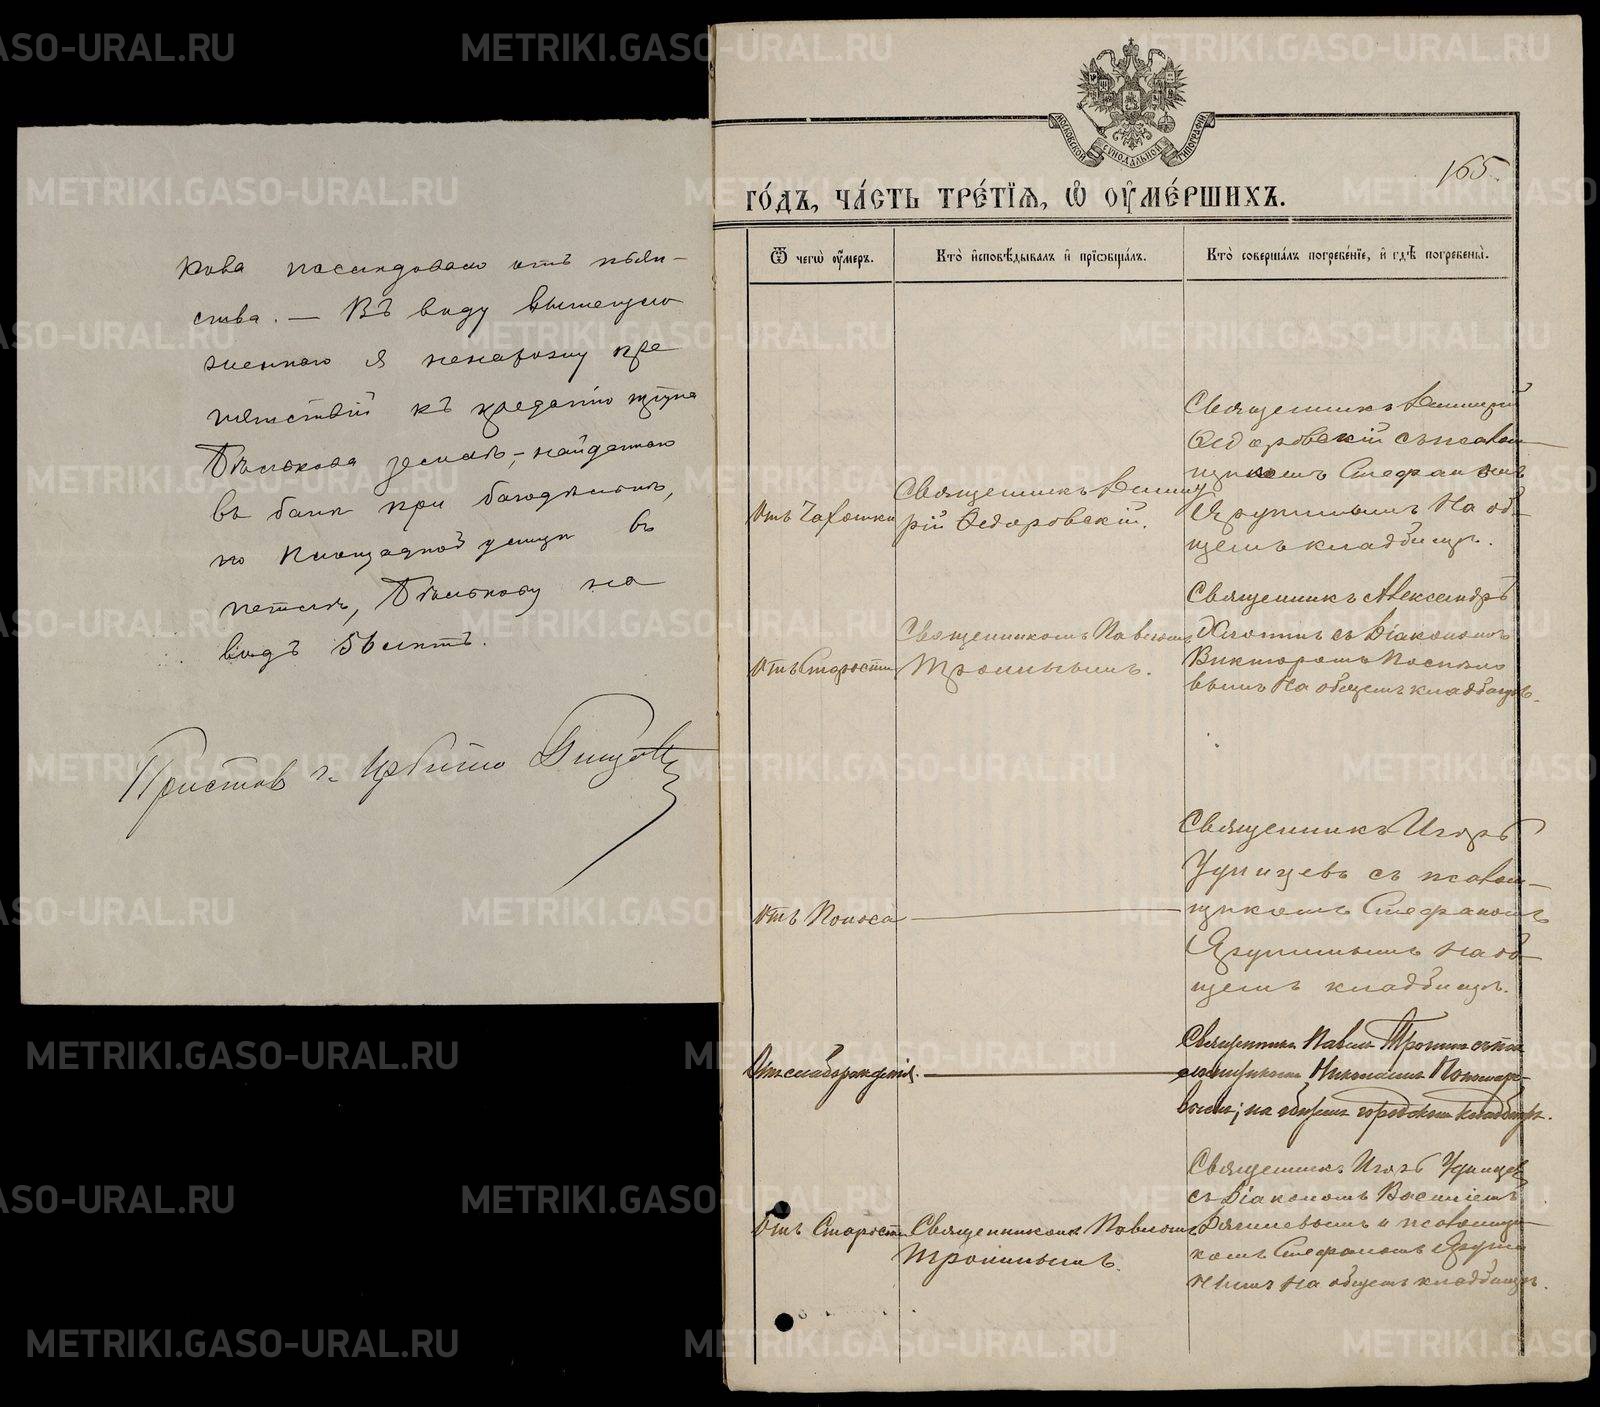 кова последовало отъ пьян-
ства. — Въ виду вышеизло
женнаго я ненахожу пре
пятствій къ преданію трупа
Бѣлькова землѣ, – найденнаго
въ банѣ при богадѣльнѣ,
по Площадной улицѣ въ
петлѣ, Бѣлькову на
видъ 56 лѣтъ.
Приставъ г. Ирбита
165.
МОСКОВСКОЙ СѴНОДАЛЬНОЙ ТИПОГРАФІИ
ГО́ДЪ, ЧА́СТЬ ТРЕ́ТІѦ, Ѡ҆ ОУ҆МЕ́РШИХЪ.
Ѿ чегѡ̀ оу҆́меръ.
Кто̀ и҆сповѣ́дывалъ и҆ прїѡбща́лъ.
Кто̀ соверша́лъ погребе́нїе, и҆ гдѣ̀ погребены̀.
Отъ Чахотки
Священникъ
рій Ѳедоровскій.
Священникъ
Ѳедоровскій съ псалом-
щикомъ Стефаномъ
Ягупинымъ на об-
щемъ кладбищѣ.
Отъ Старости
Священникомъ Павломъ
Трониным.
Священникъ Александръ
съ Діакономъ
Викторомъ Поспѣло
вымъ на общемъ кладбищѣ.
Отъ Поноса
Священникъ Игорь
Удинцевъ съ псалом-
щикомъ Стефаномъ
Ягупинымъ на об-
щемъ кладбищѣ.
Отъ слаборожденія.
Священникъ Павелъ Тронинъ съ пса
ломщикомъ Николаемъ Пономаре-
вымъ; на общемъ городскомъ кладбищѣ.
Отъ Старости
Священникомъ Павломъ
Тронинымъ.
Священникъ Игорь Удинцевъ
съ Діакономъ Василіемъ
и псаломщи-
комъ Стефаномъ Ягупи
нымъ на общемъ кладбищѣ.
METRIKI.GASO-URAL.RU